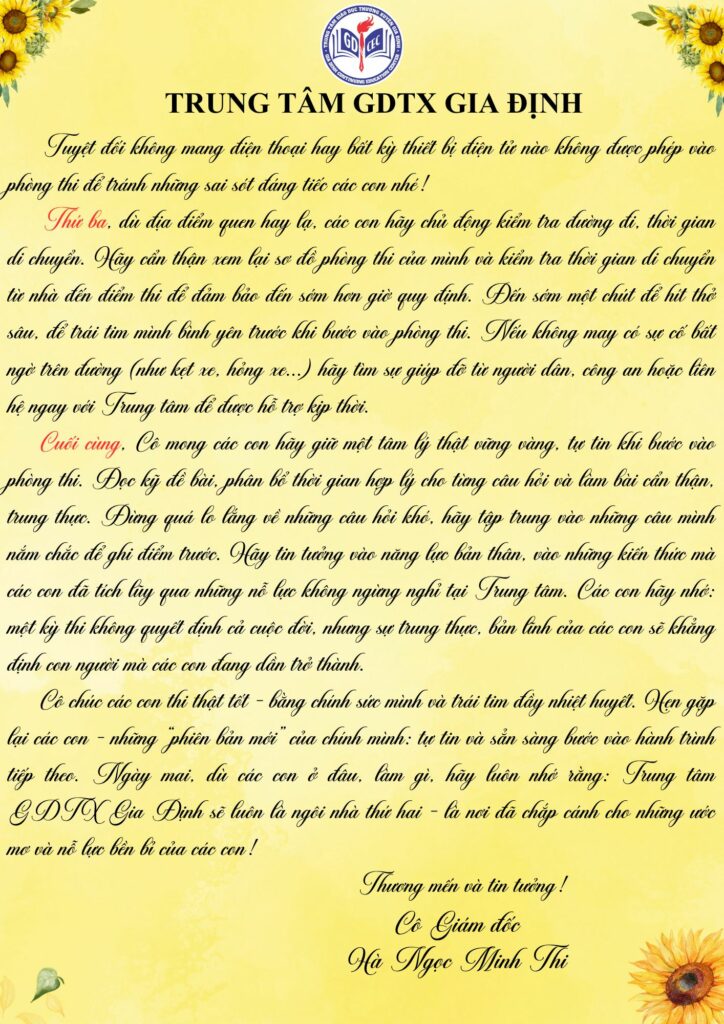 TRUNG TÂM GIÁO DỤC THƯỜNG XUYÊN GIA ĐỊNH
GD CEC
GIA DINH CONTINUING EDUCATION CENTER
TRUNG TÂM GDTX GIA ĐỊNH
Tuyệt đối không mang điện thoại hay bất kỳ thiết bị điện tử nào không được phép vào
phòng thi để tránh những sai sót đáng tiếc các con nhé!
Thứ ba, dù địa điểm quen hay lạ, các con hãy chủ động kiểm tra đường đi, thời gian
di chuyển. Hãy cẩn thận xem lại sơ đồ phòng thi của mình và kiểm tra thời gian di chuyển
từ nhà đến điểm thi để đảm bảo đến sớm hơn giờ quy định. Đến sớm một chút để hít thở
sâu, để trái tim mình bình yên trước khi bước vào phòng thi. Nếu không may có sự cố bất
ngờ trên đường (như kẹt xe, hỏng xe...) hãy tìm sự giúp đỡ từ người dân, công an hoặc liên
hệ ngay với Trung tâm để được hỗ trợ kịp thời.
Cuối cùng, Cô mong các con hãy giữ một tâm lý thật vững vàng, tự tin khi bước vào
phòng thi. Đọc kỹ đề bài, phân bổ thời gian hợp lý cho từng câu hỏi và làm bài cẩn thận,
trung thực. Đừng quá lo lắng về những câu hỏi khó, hãy tập trung vào những câu mình
nắm chắc để ghi điểm trước. Hãy tin tưởng vào năng lực bản thân, vào những kiến thức mà
các con đã tích lũy qua những nỗ lực không ngừng nghỉ tại Trung tâm. Các con hãy nhớ:
một kỳ thi không quyết định cả cuộc đời, nhưng sự trung thực, bản lĩnh của các con sẽ khẳng
định con người mà các con đang dần trở thành.
Cô chúc các con thi thật tốt - bằng chính sức mình và trái tim đầy nhiệt huyết. Hẹn gặp
lại các con - những “phiên bản mới” của chính mình: tự tin và sẵn sàng bước vào hành trình
tiếp theo. Ngày mai, dù các con ở đâu, làm gì, hãy luôn nhớ rằng: Trung tâm
GDTX Gia Định sẽ luôn là ngôi nhà thứ hai - là nơi đã chắp cánh cho những ước
mơ và nỗ lực bền bỉ của các con!
Thương mến và tin tưởng!
Cô Giám đốc
Hà Ngọc Minh Thi